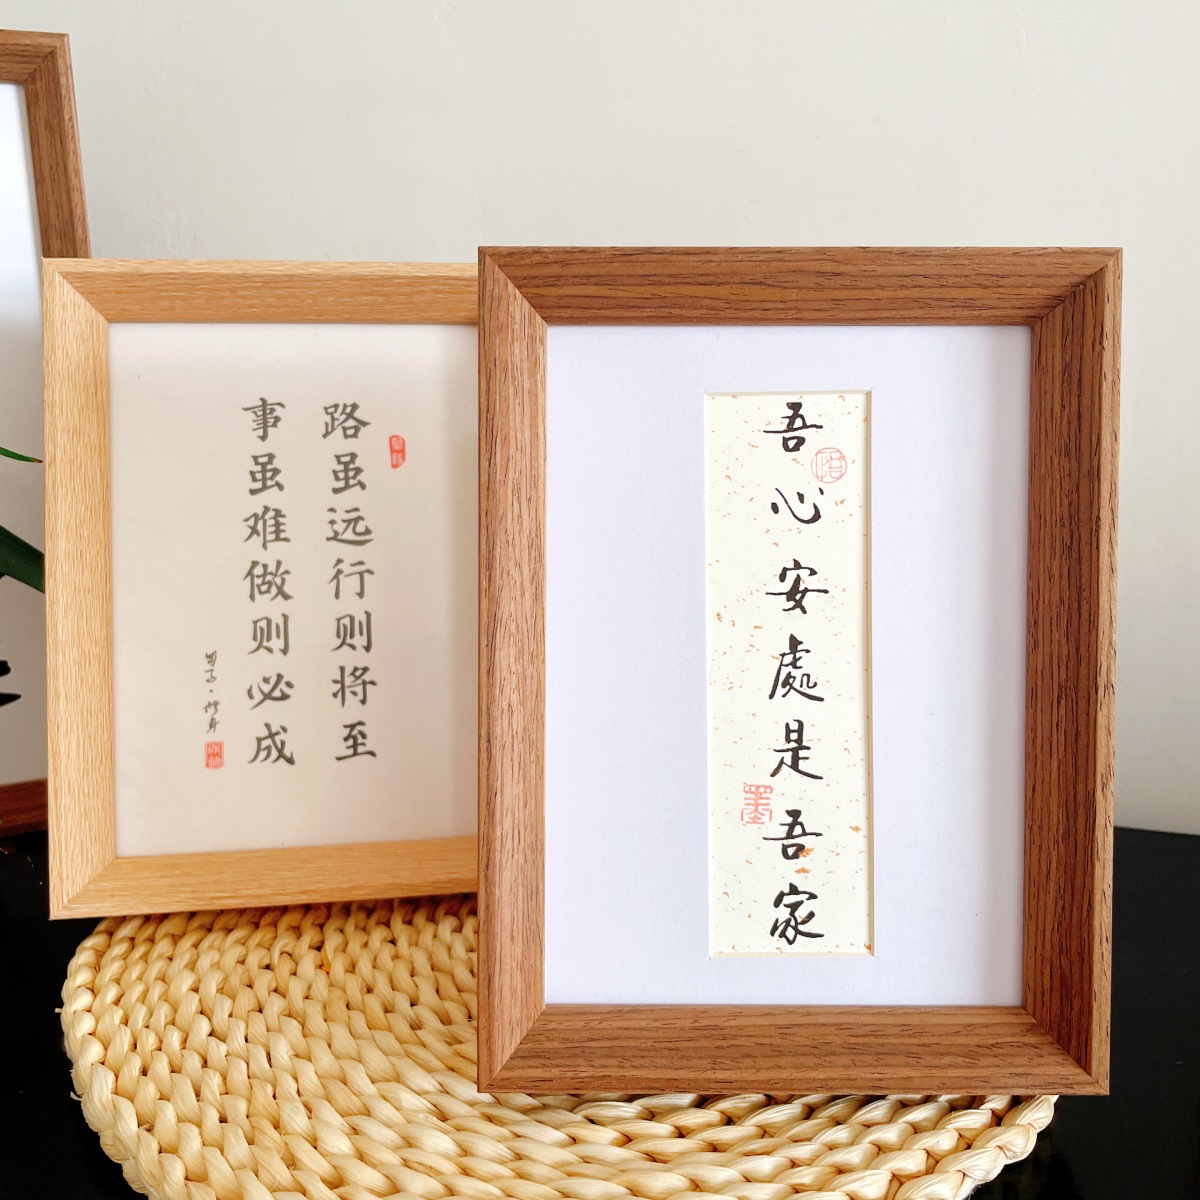 路虽远行则将至
事虽难做则必成
荀子·修身
吾心安處是吾家
悟
墨